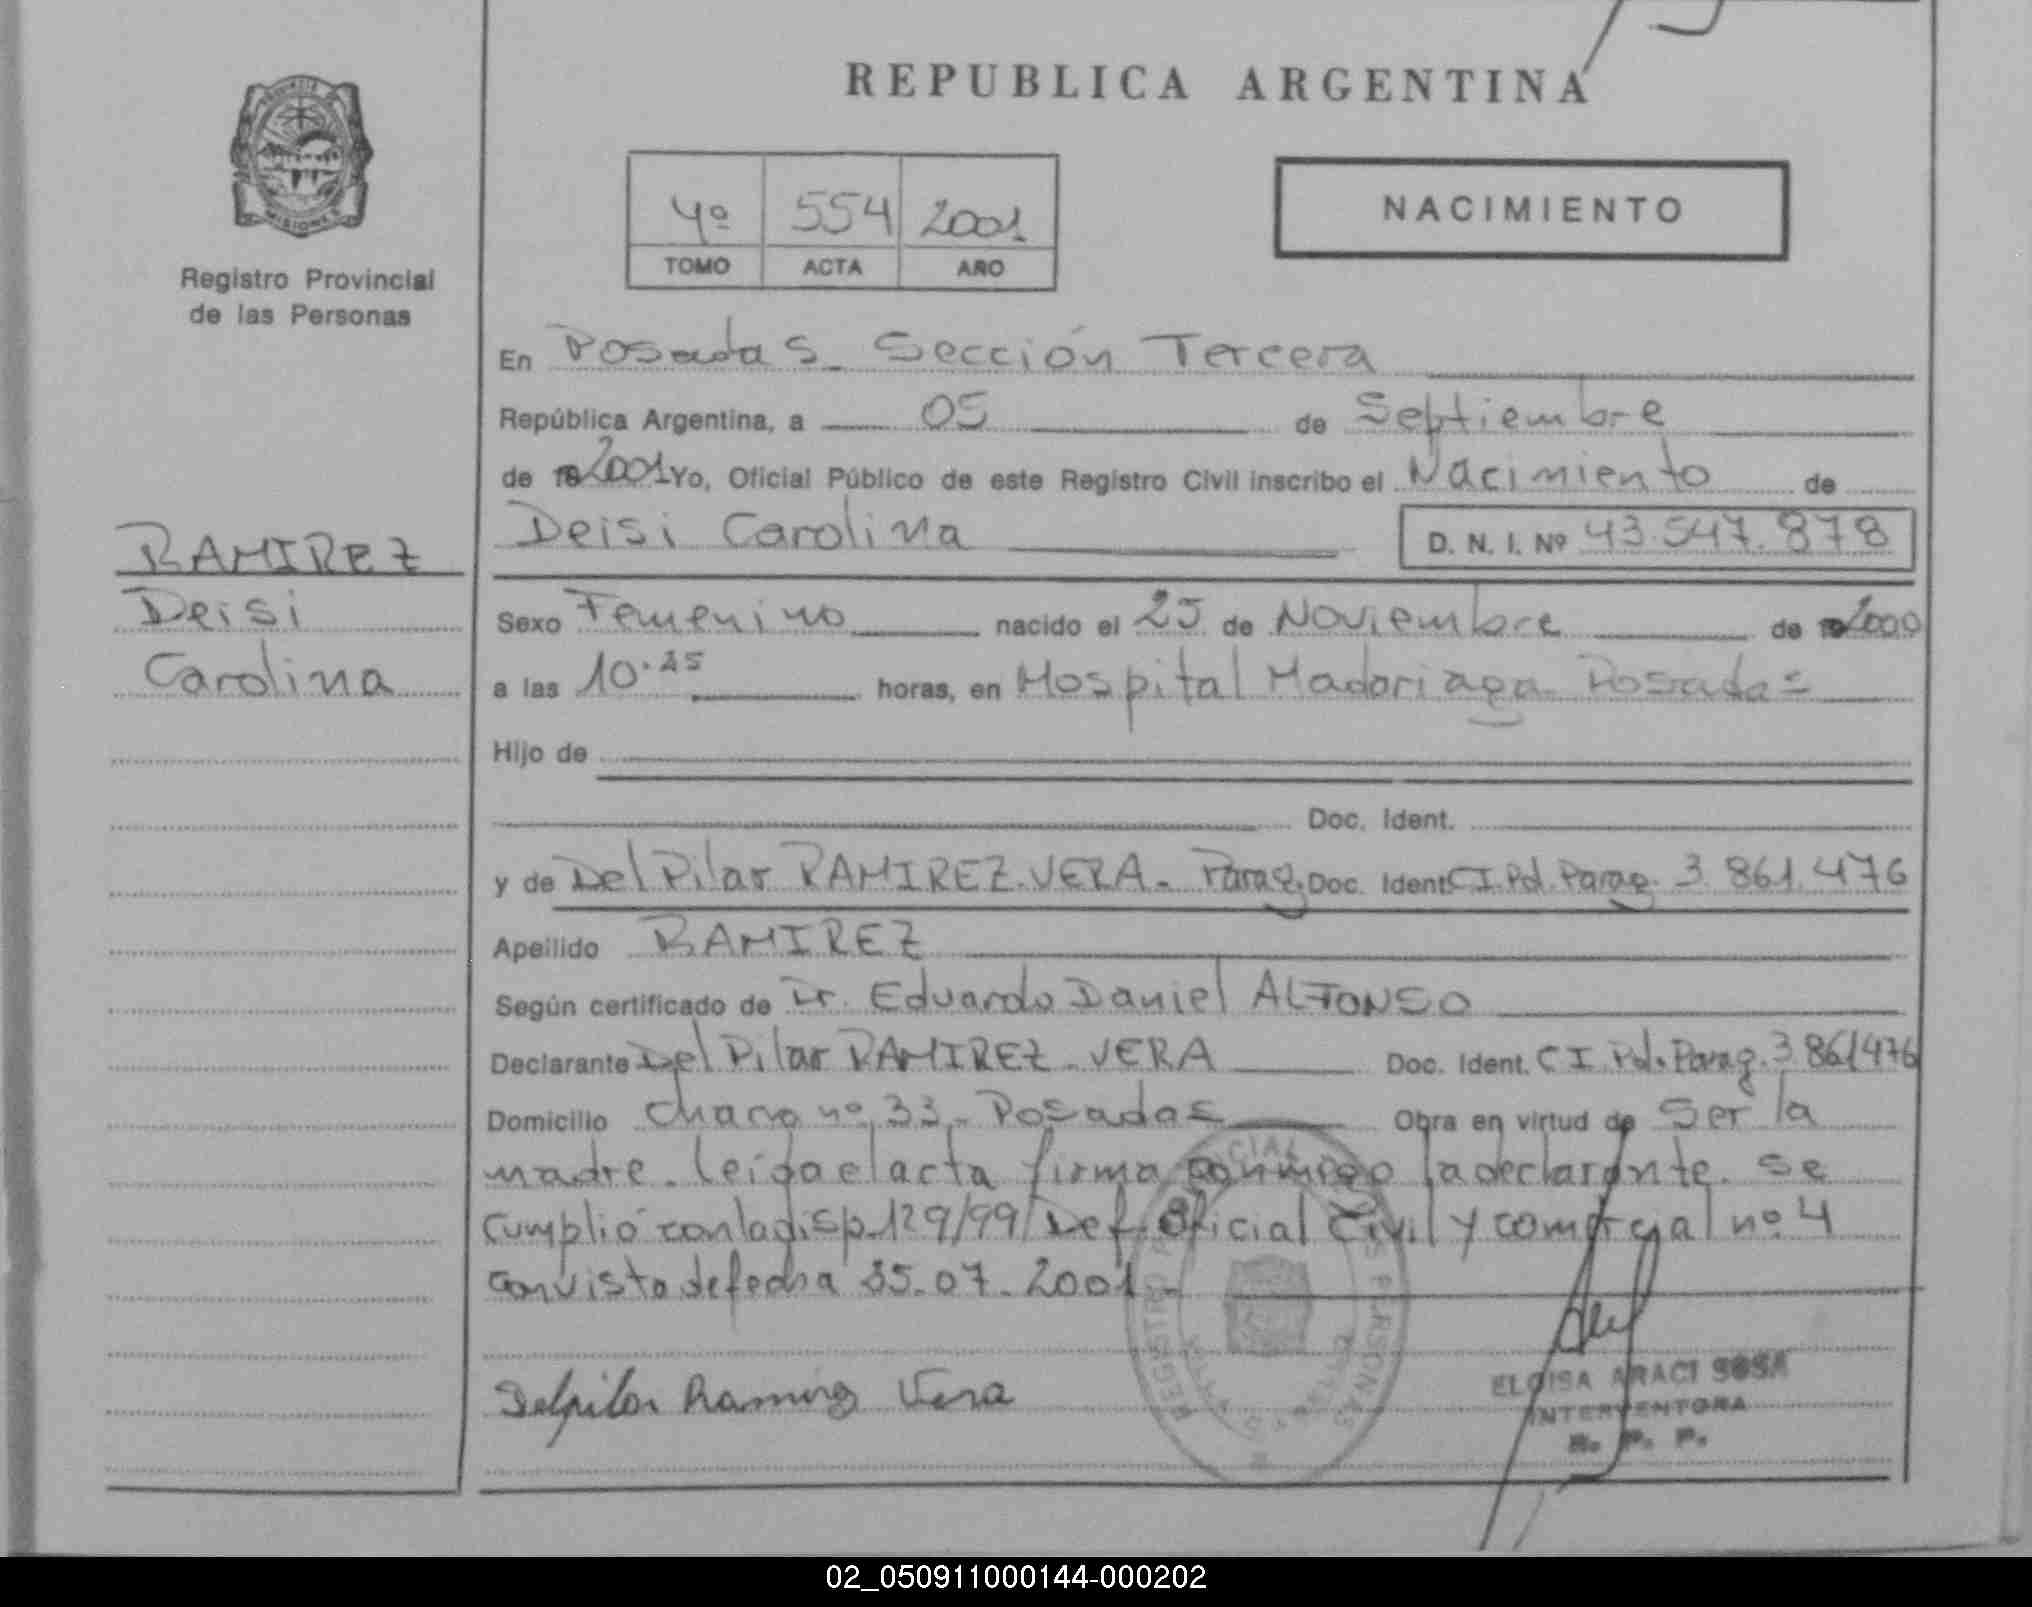 REPUBLICA ARGENTINA
PROVINCIA DE
MISIONES
Registro Provincial
de las Personas
4º 554 2001
TOMO ACTA AÑO
NACIMIENTO
En Posadas - Sección Tercera
República Argentina, a 05 de Septiembre
de 2001 Yo, Oficial Público de este Registro Civil inscribo el Nacimiento de
Deisi Carolina D. N. I. Nº 43.547.878
RAMIREZ
Deisi
Carolina
Sexo Femenino nacido el 25 de Noviembre de 2000
a las 10.25 horas, en Hospital Madariaga Posadas
Hijo de
Doc. Ident.
y de Del Pilar RAMIREZ.VERA. Parag. Doc. Ident CI.Pol.Parag. 3.861.476
Apellido RAMIREZ
Según certificado de Dr. Eduardo Daniel ALFONSO
Declarante Del Pilar RAMIREZ - VERA Doc. Ident. CI.Pol.Parag. 3.861476
Domicilio nº 33 - Posadas Obra en virtud de Ser la
madre. leida el acta firma conmigo la declarante. Se
cumplió con la disp. 129/99 Def. Oficial Civil y comercial nº 4
con vista de fecha .07.2001.
Delpilar Ramirez Vera
REGISTRO PROVINCIAL DE LAS PERSONAS
ELOISA ARACI SOSA
INTERVENTORA
R. P. P.
02_050911000144-000202